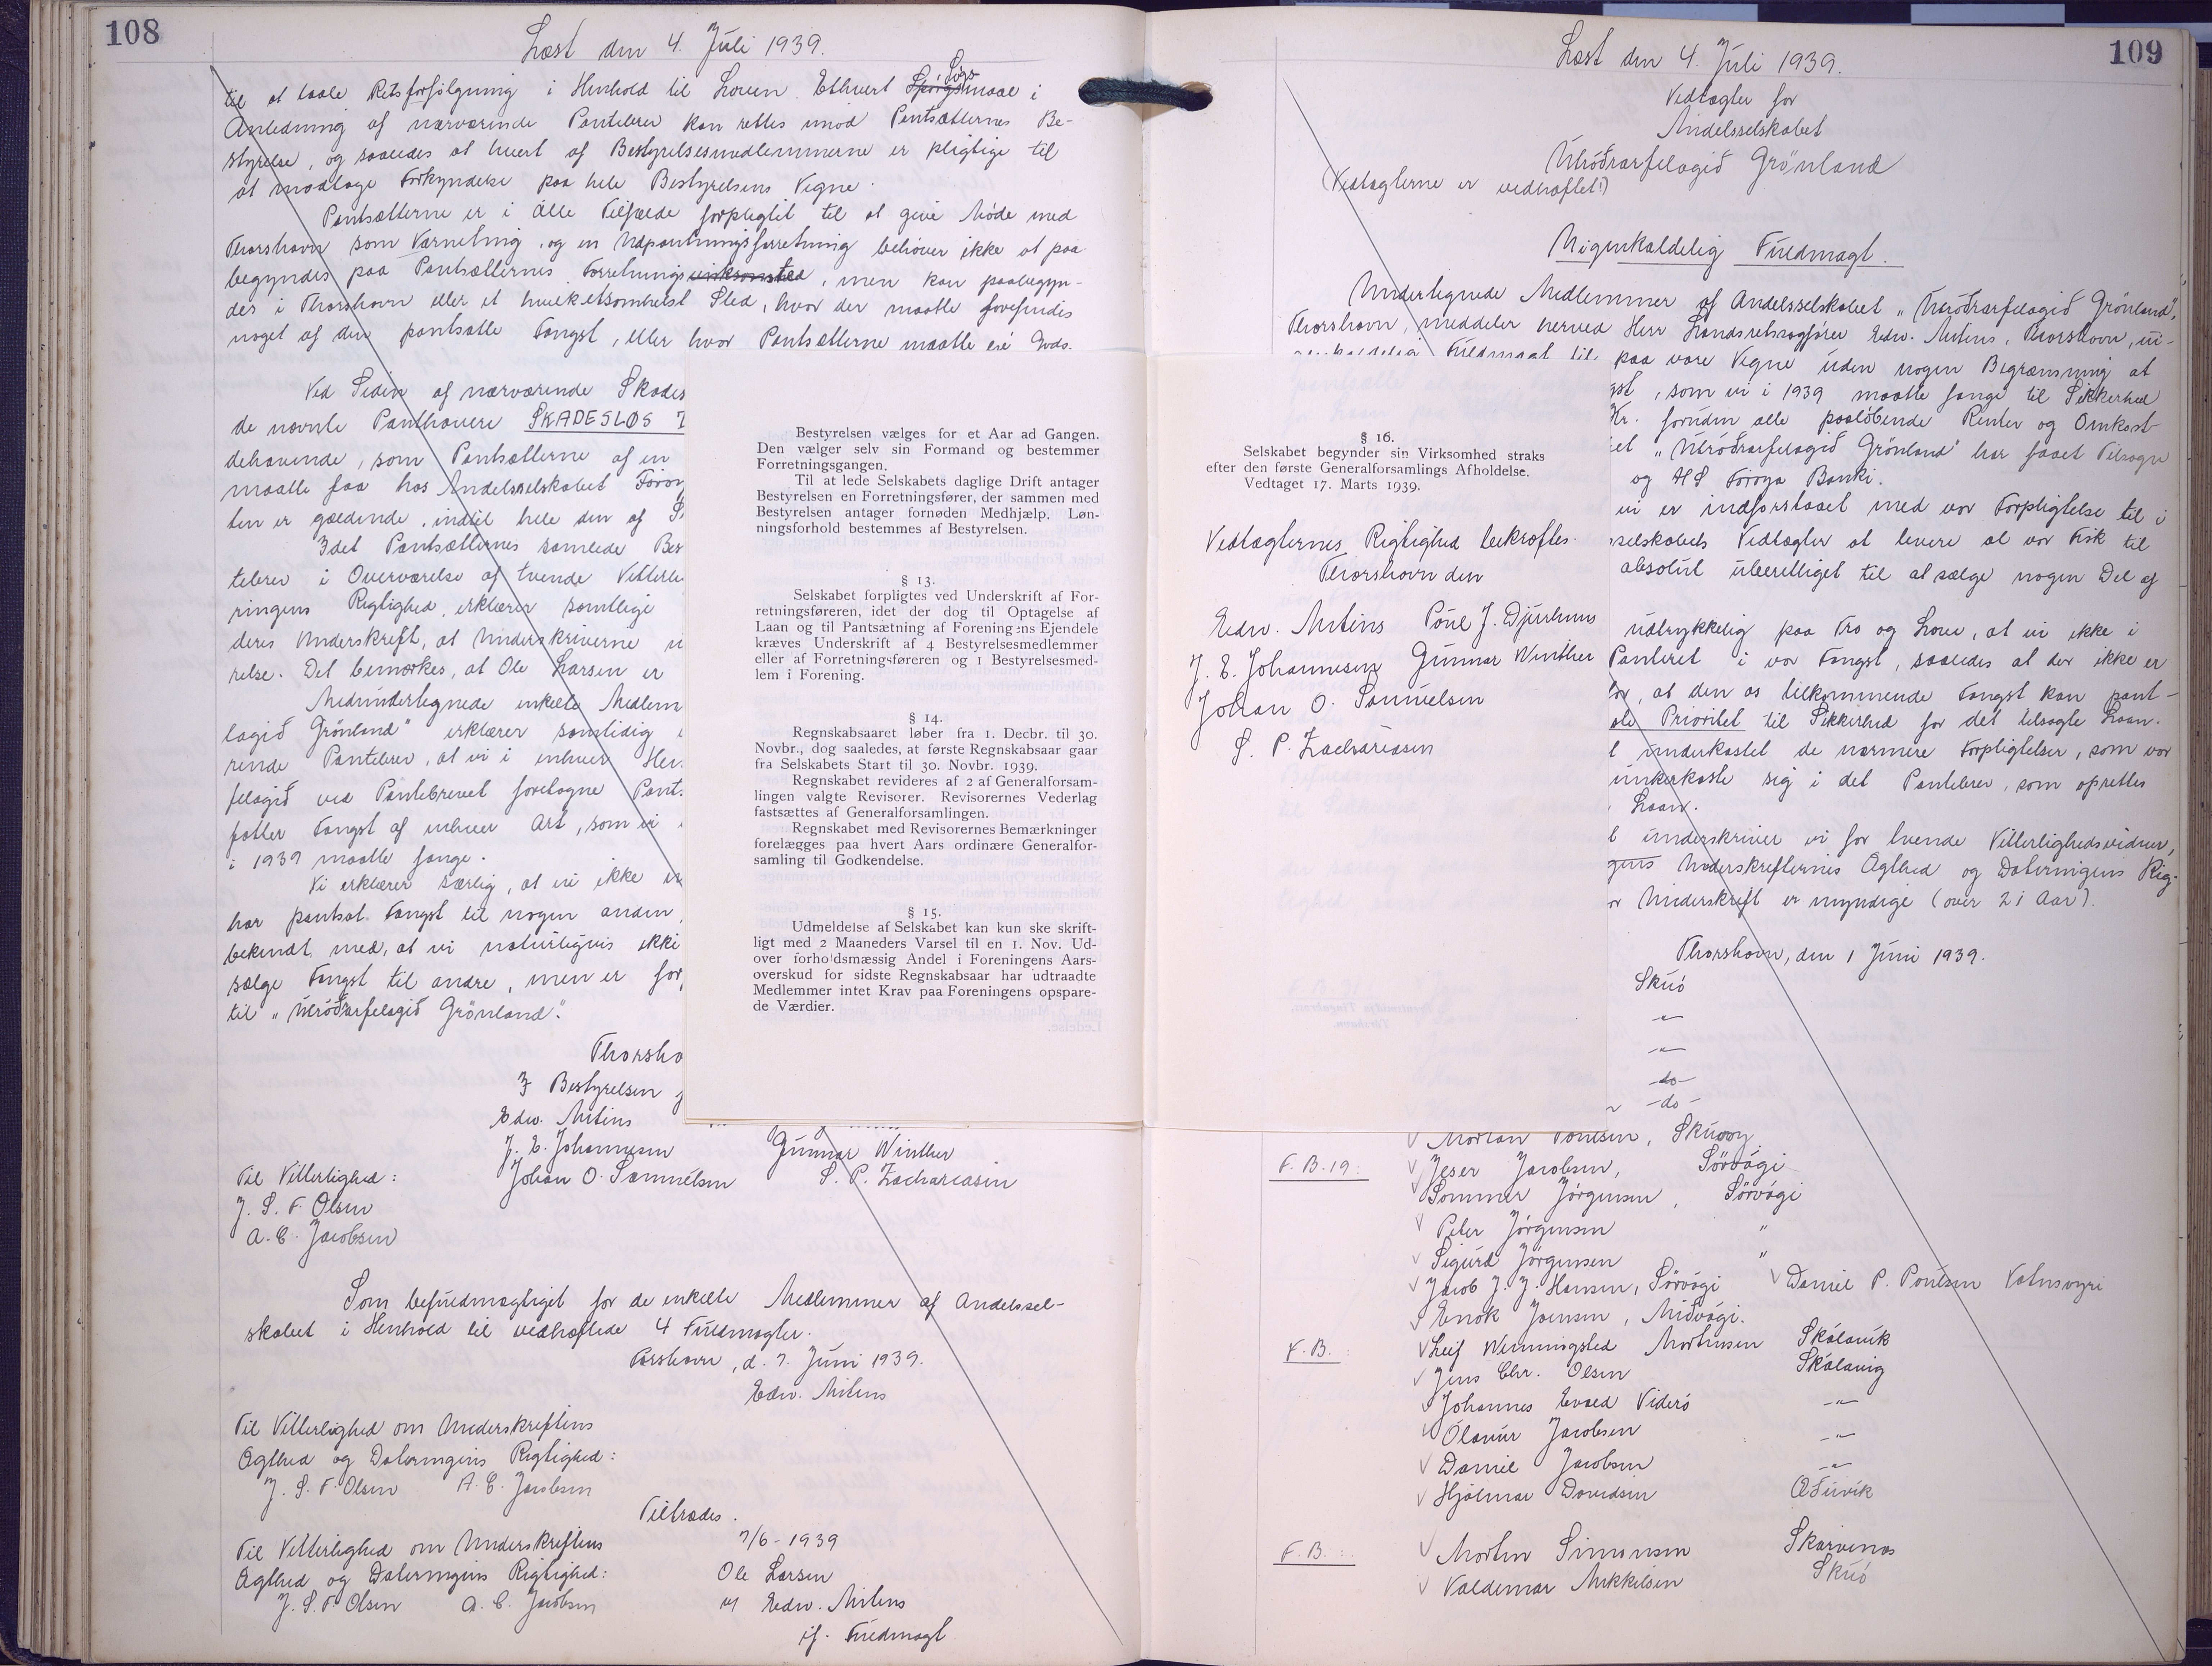 108
Læst den 4. Juli 1939.
til at taale Retsforfölgning i Henhold til Loven. Ethvert Spörgsmaal i
Søgs
Anledning af nærværende Pantebrev kan rettes imod Pantsætternes Be-
styrelse, og saaledes at hvert af Bestyrelsesmedlemmerne er pligtige til
at modtage Forkyndelse paa hele Bestyrelsens Vegne.
Pantsætterne er i alle Tilfælde forpligtet til at give Möde med
Thorshavn som Værneting, og en Udpantningsforretning behöver ikke at paa
begyndes paa Pantsætternes Forretningsvirksomhed, men kan paabegyn-
des i Thorshavn eller et hvilketsomhelst Sted, hvor der maatte forefindes
noget af den pantsatte Fangst, eller hvor Pantsætterne maatte eje Gods.
Ved Siden af nærværende Skades
de nævnte Panthavere SKADESLØS
dehavende, som Pantsætterne af en
maatte faa hos Andelsselskabet Föroy
ten er gældende, indtil hele den af S
Idet Pantsætternes samlede Bes
tebrev i Overværelse af tvende Vitterli
ringens Rigtighed, erklærer samtlige
deres Underskrift, at Underskriverne u
relse. Det bemærkes, at Ole Larsen er
Medundertegnede enkelte Medlem
lagið Grönland" erklærer samtidig
rende Pantebrev, at vi i enhver Hen
felagið ved Pantebrevet foretagne Pant
fatter Fangst af enhver Art, som vi
i 1939 maatte fange.
Vi erklærer særlig, at vi ikke
har pantsat Fangst til nogen anden,
bekendt med, at vi naturligvis ikke
sælge Fangst til andre, men er for
til "Útróðrarfelagið Grönland".
Thorsha
F Bestyrelsen
Edw. Mitens
J. E. Johannesen
Gunnar Winther
Johan O. Samuelsen
S. P. Zachariasen
Til Vitterlighed:
J. S. F. Olsen
A. C. Jacobsen
Som befuldmægtiget for de enkelte Medlemmer af Andelssel-
skabet i Henhold til vedhæftede 4 Fuldmagter.
Torshavn, d. 7. Juni 1939.
Edw. Mitens
Til Vitterlighed om Underskriftens
Ægthed og Dateringens Rigtighed:
J. S. F. Olsen A. C. Jacobsen
Tiltrædes.
7/6-1939
Til Vitterlighed om Underskriftens
Ægthed og Dateringens Rigtighed:
Ole Larsen
J. S. F. Olsen A. C. Jacobsen
v/ Edw. Mitens
if. Fuldmagt
Bestyrelsen vælges for et Aar ad Gangen.
Den vælger selv sin Formand og bestemmer
Forretningsgangen.
Til at lede Selskabets daglige Drift antager
Bestyrelsen en Forretningsfører, der sammen med
Bestyrelsen antager fornøden Medhjælp. Løn-
ningsforhold bestemmes af Bestyrelsen.
§ 13.
Selskabet forpligtes ved Underskrift af For-
retningsføreren, idet der dog til Optagelse af
Laan og til Pantsætning af Foreningens Ejendele
kræves Underskrift af 4 Bestyrelsesmedlemmer
eller af Forretningsføreren og 1 Bestyrelsesmed-
lem i Forening.
§ 14.
Regnskabsaaret løber fra 1. Decbr. til 30.
Novbr., dog saaledes, at første Regnskabsaar gaar
fra Selskabets Start til 30. Novbr. 1939.
Regnskabet revideres af 2 af Generalforsam-
lingen valgte Revisorer. Revisorernes Vederlag
fastsættes af Generalforsamlingen.
Regnskabet med Revisorernes Bemærkninger
forelægges paa hvert Aars ordinære Generalfor-
samling til Godkendelse.
§ 15.
Udmeldelse af Selskabet kan kun ske skrift-
ligt med 2 Maaneders Varsel til en 1. Nov. Ud-
over forholdsmæssig Andel i Foreningens Aars-
overskud for sidste Regnskabsaar har udtraadte
Medlemmer intet Krav paa Foreningens opspare-
de Værdier.
109
Læst den 4. Juli 1939.
Vedtægter for
Andelsselskabet
Útróðrarfelagið Grönland
(Vedtægterne er vedhæftet!)
Uigenkaldelig Fuldmagt.
Undertegnede Medlemmer af Andelsselskabet "Útróðrarfelagið Grönland",
Thorshavn, meddeler herved Herr Landsretssagfører Edw. Mitens, Thorshavn, ui-
genkaldelig Fuldmagt til paa vore Vegne uden nogen Begrænsning at
gst, som vi i 1939 maatte fange til Sikkerhed
Kr. foruden alle paalöbende Renter og Omkost-
et "Útróðrarfelagið Grönland" har faaet Tilsagn
og A/S Föroya Banki.
vi er indforstaaet med vor Forpligtelse til i
selskabets Vedtægter at levere al vor Fisk til
absolut uberettiget til at sælge nogen Del af
udtrykkelig paa Tro og Love, at vi ikke i
Panteret i vor Fangst, saaledes at der ikke er
for, at den os tilkommende Fangst kan pant-
ste Prioritet til Sikkerhed for det tilsagte Laan.
t underkastet de nærmere Forpligtelser, som vor
underkaste sig i det Pantebrev, som oprettes
Laan.
t underskriver vi for tvende Vitterlighedsvidner,
gens Underskrifternes Ægthed og Dateringens Rig-
or Underskrift er myndige (over 21 Aar).
Thorshavn, den 1 Juni 1939.
Skuö
-"-
-"-
-do-
-do-
§ 16.
Selskabet begynder sin Virksomhed straks
efter den første Generalforsamlings Afholdelse.
Vedtaget 17. Marts 1939.
Vedtægternes Rigtighed bekræftes.
Thorshavn den
Edw. Mitens Póul J. Djurhuus
J. E. Johannesen Gunnar Winther
Johan O. Samuelsen
S. P. Zachariasen
Mortan Poulsen, Skúvoy
F.B.19: Jeser Jacobsen, Sörvági
Sommer Jörgensen, Sörvági
Peter Jörgensen "
Sigurd Jörgensen "
Jacob J. J. Hansen, Sörvági Daniel P. Poulsen Vatnsoyri
Enok Joensen, Miðvági.
F.B.: Leif Wenningsted Mortensen Skálavík
Jens Chr. Olsen Skálavig
Johannes Evald Viderö -"-
Ólavur Jacobsen -"-
Daniel Jacobsen -"-
Hjálmar Davidsen Øfuvík
F.B.: Morten Simonsen Skarvenæs
Valdemar Mikkelsen Skuö